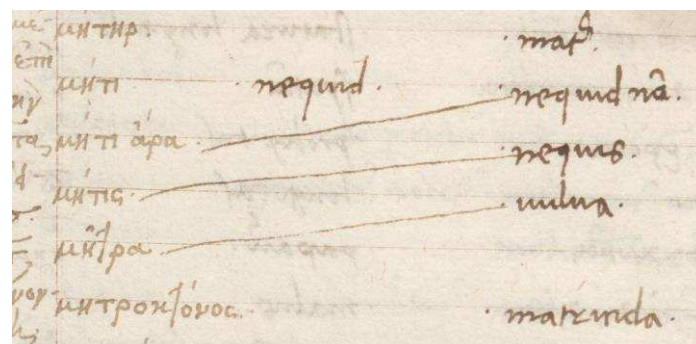 μήτηρ · matr̃.
μήτι nequid.
μήτι ἄρα. · nequid nã.
μήτις. · nequis.
μήτρα. · uulua.
μητροκτόνος. · matricida.